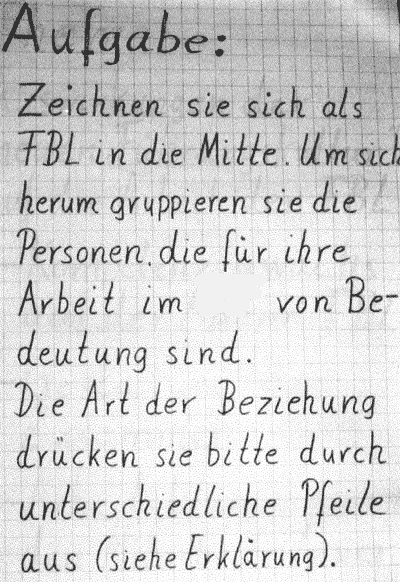 Aufgabe:
Zeichnen sie sich als
FBL in die Mitte. Um sich
herum gruppieren sie die
Personen, die für ihre
Arbeit im von Be-
deutung sind.
Die Art der Beziehung
drücken sie bitte durch
unterschiedliche Pfeile
aus (siehe Erklärung).